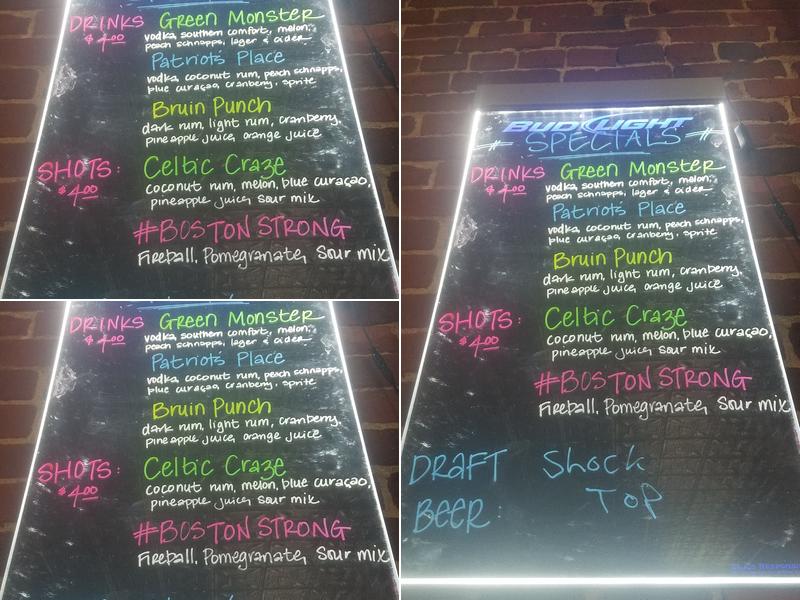 DRINKS Green Monster
$4.00 vodka, southern comfort, melon,
peach schnapps, lager & cider
Patriots Place
vodka, coconut rum, peach schnapps,
blue curaçao, cranberry, sprite
Bruin Punch
dark rum, light rum, cranberry,
pineapple juice, orange juice
SHOTS: Celtic Craze
$4.00 coconut rum, melon, blue curaçao,
pineapple juice, sour mix
#BOSTON STRONG
Fireball, Pomegranate, Sour mix
DRINKS Green Monster
$4.00 vodka, southern comfort, melon,
peach schnapps, lager & cider
Patriots Place
vodka, coconut rum, peach schnapps,
blue curaçao, cranberry, sprite
Bruin Punch
dark rum, light rum, cranberry,
pineapple juice, orange juice
SHOTS: Celtic Craze
$4.00 coconut rum, melon, blue curaçao,
pineapple juice, sour mix
#BOSTON STRONG
Fireball, Pomegranate, Sour mix
BUD LIGHT
SPECIALS
DRINKS Green Monster
$4.00 vodka, southern comfort, melon,
peach schnapps, lager & cider
Patriots Place
vodka, coconut rum, peach schnapps,
blue curaçao, cranberry, sprite
Bruin Punch
dark rum, light rum, cranberry,
pineapple juice, orange juice
SHOTS: Celtic Craze
$4.00 coconut rum, melon, blue curaçao,
pineapple juice, sour mix
#BOSTON STRONG
Fireball, Pomegranate, Sour mix
DRAFT Shock
BEER: TOP